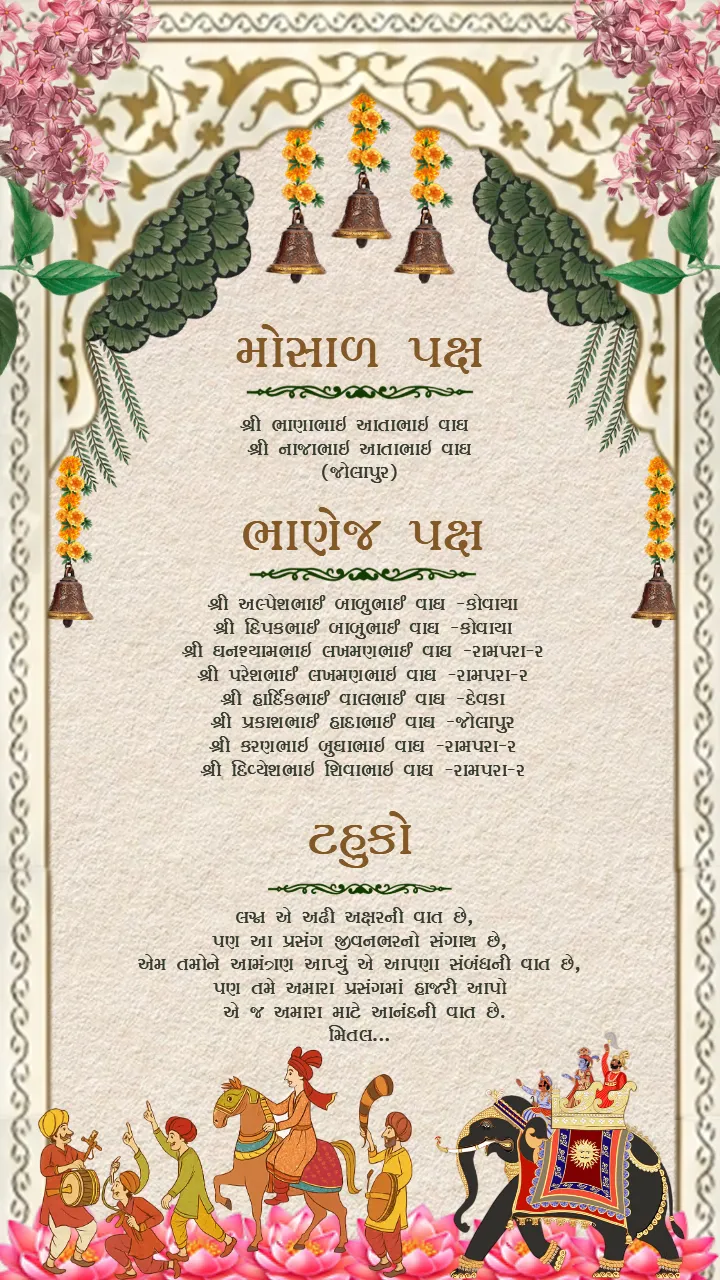 મોસાળ પક્ષ
શ્રી ભાણાભાઇ આતાભાઇ વાઘ
શ્રી નાજાભાઇ આતાભાઇ વાઘ
(જોલાપુર)
ભાણેજ પક્ષ
શ્રી અલ્પેશભાઈ બાબુભાઈ વાઘ -કોવાયા
શ્રી દિપકભાઈ બાબુભાઈ વાઘ -કોવાયા
શ્રી ઘનશ્યામભાઈ લખમણભાઈ વાઘ -રામપરા-૨
શ્રી પરેશભાઈ લખમણભાઈ વાઘ -રામપરા-૨
શ્રી હાર્દિકભાઈ વાલભાઈ વાઘ -દેવકા
શ્રી પ્રકાશભાઈ હાદાભાઈ વાઘ -જોલાપુર
શ્રી કરણભાઇ બુઘાભાઇ વાઘ -રામપરા-૨
શ્રી દિવ્યેશભાઇ શિવાભાઇ વાઘ -રામપરા-૨
ટહુકો
લગ્ન એ અઢી અક્ષરની વાત છે,
પણ આ પ્રસંગ જીવનભરનો સંગાથ છે,
એમ તમોને આમંત્રણ આપ્યું એ આપણા સંબંધની વાત છે,
પણ તમે અમારા પ્રસંગમાં હાજરી આપો
એ જ અમારા માટે આનંદની વાત છે.
મિતલ...